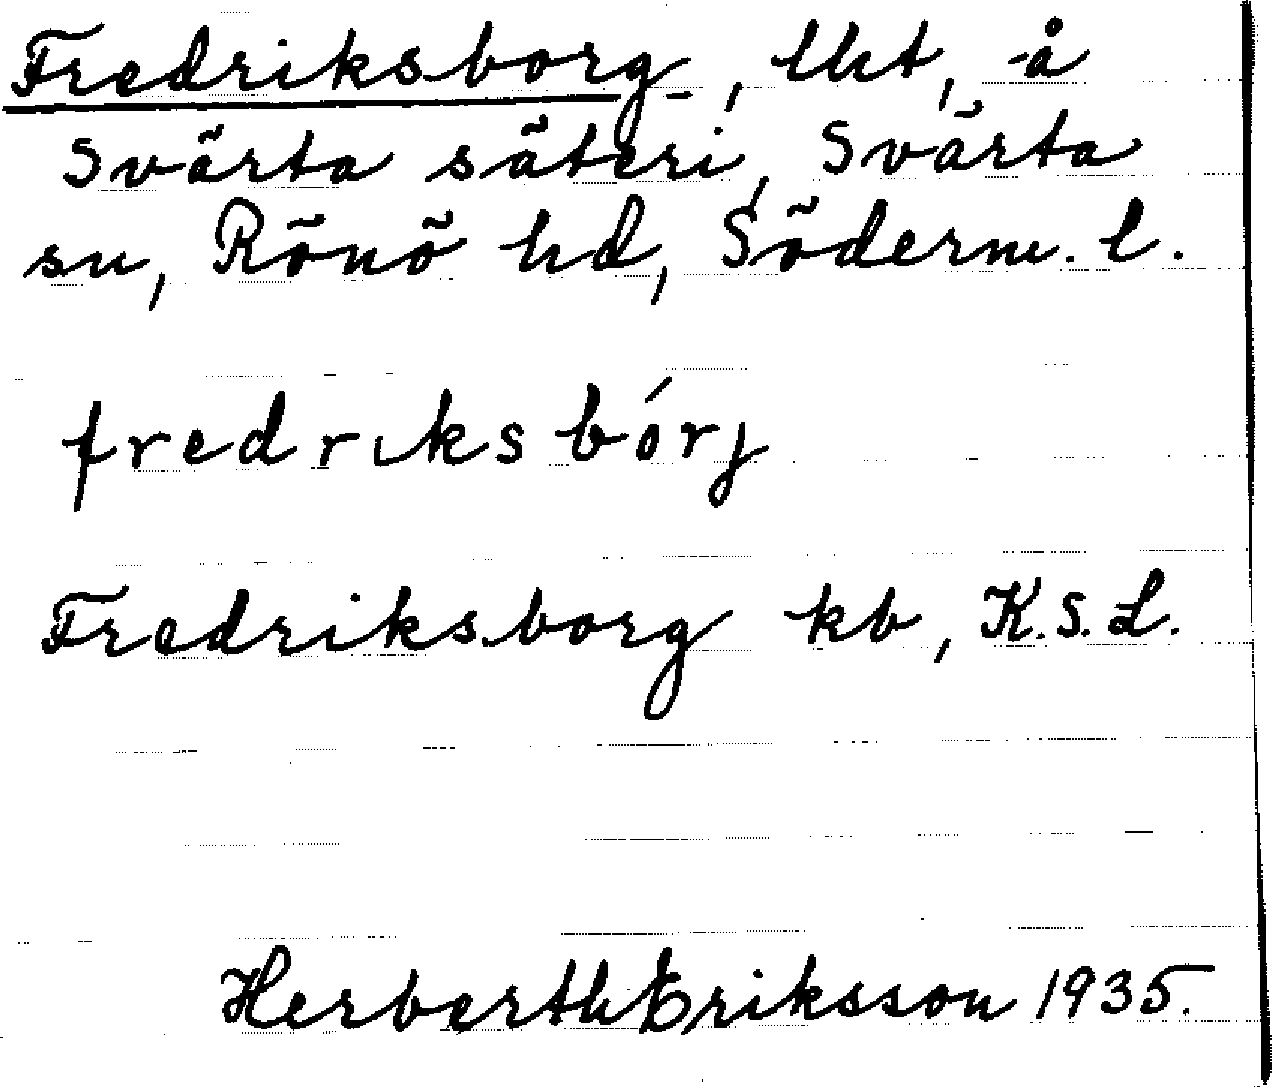 Fredriksborg, lht, å
Svärta säteri, Svärta
sn, Rönö hd, Söderm. l.
fredrıksbórj
Fredriksborg kb, K.S.L.
Herberth Eriksson 1935.